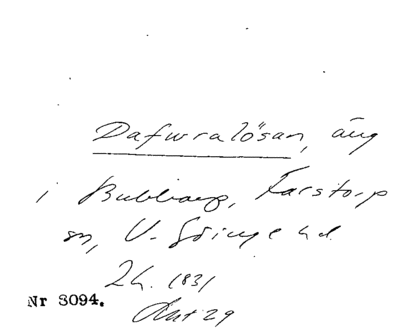 Dafwralösan, äng
i Bubbarp, Farstorp
sn, V. Göinge hd.
Lh. 1831
Nr 3094.
Akt 29